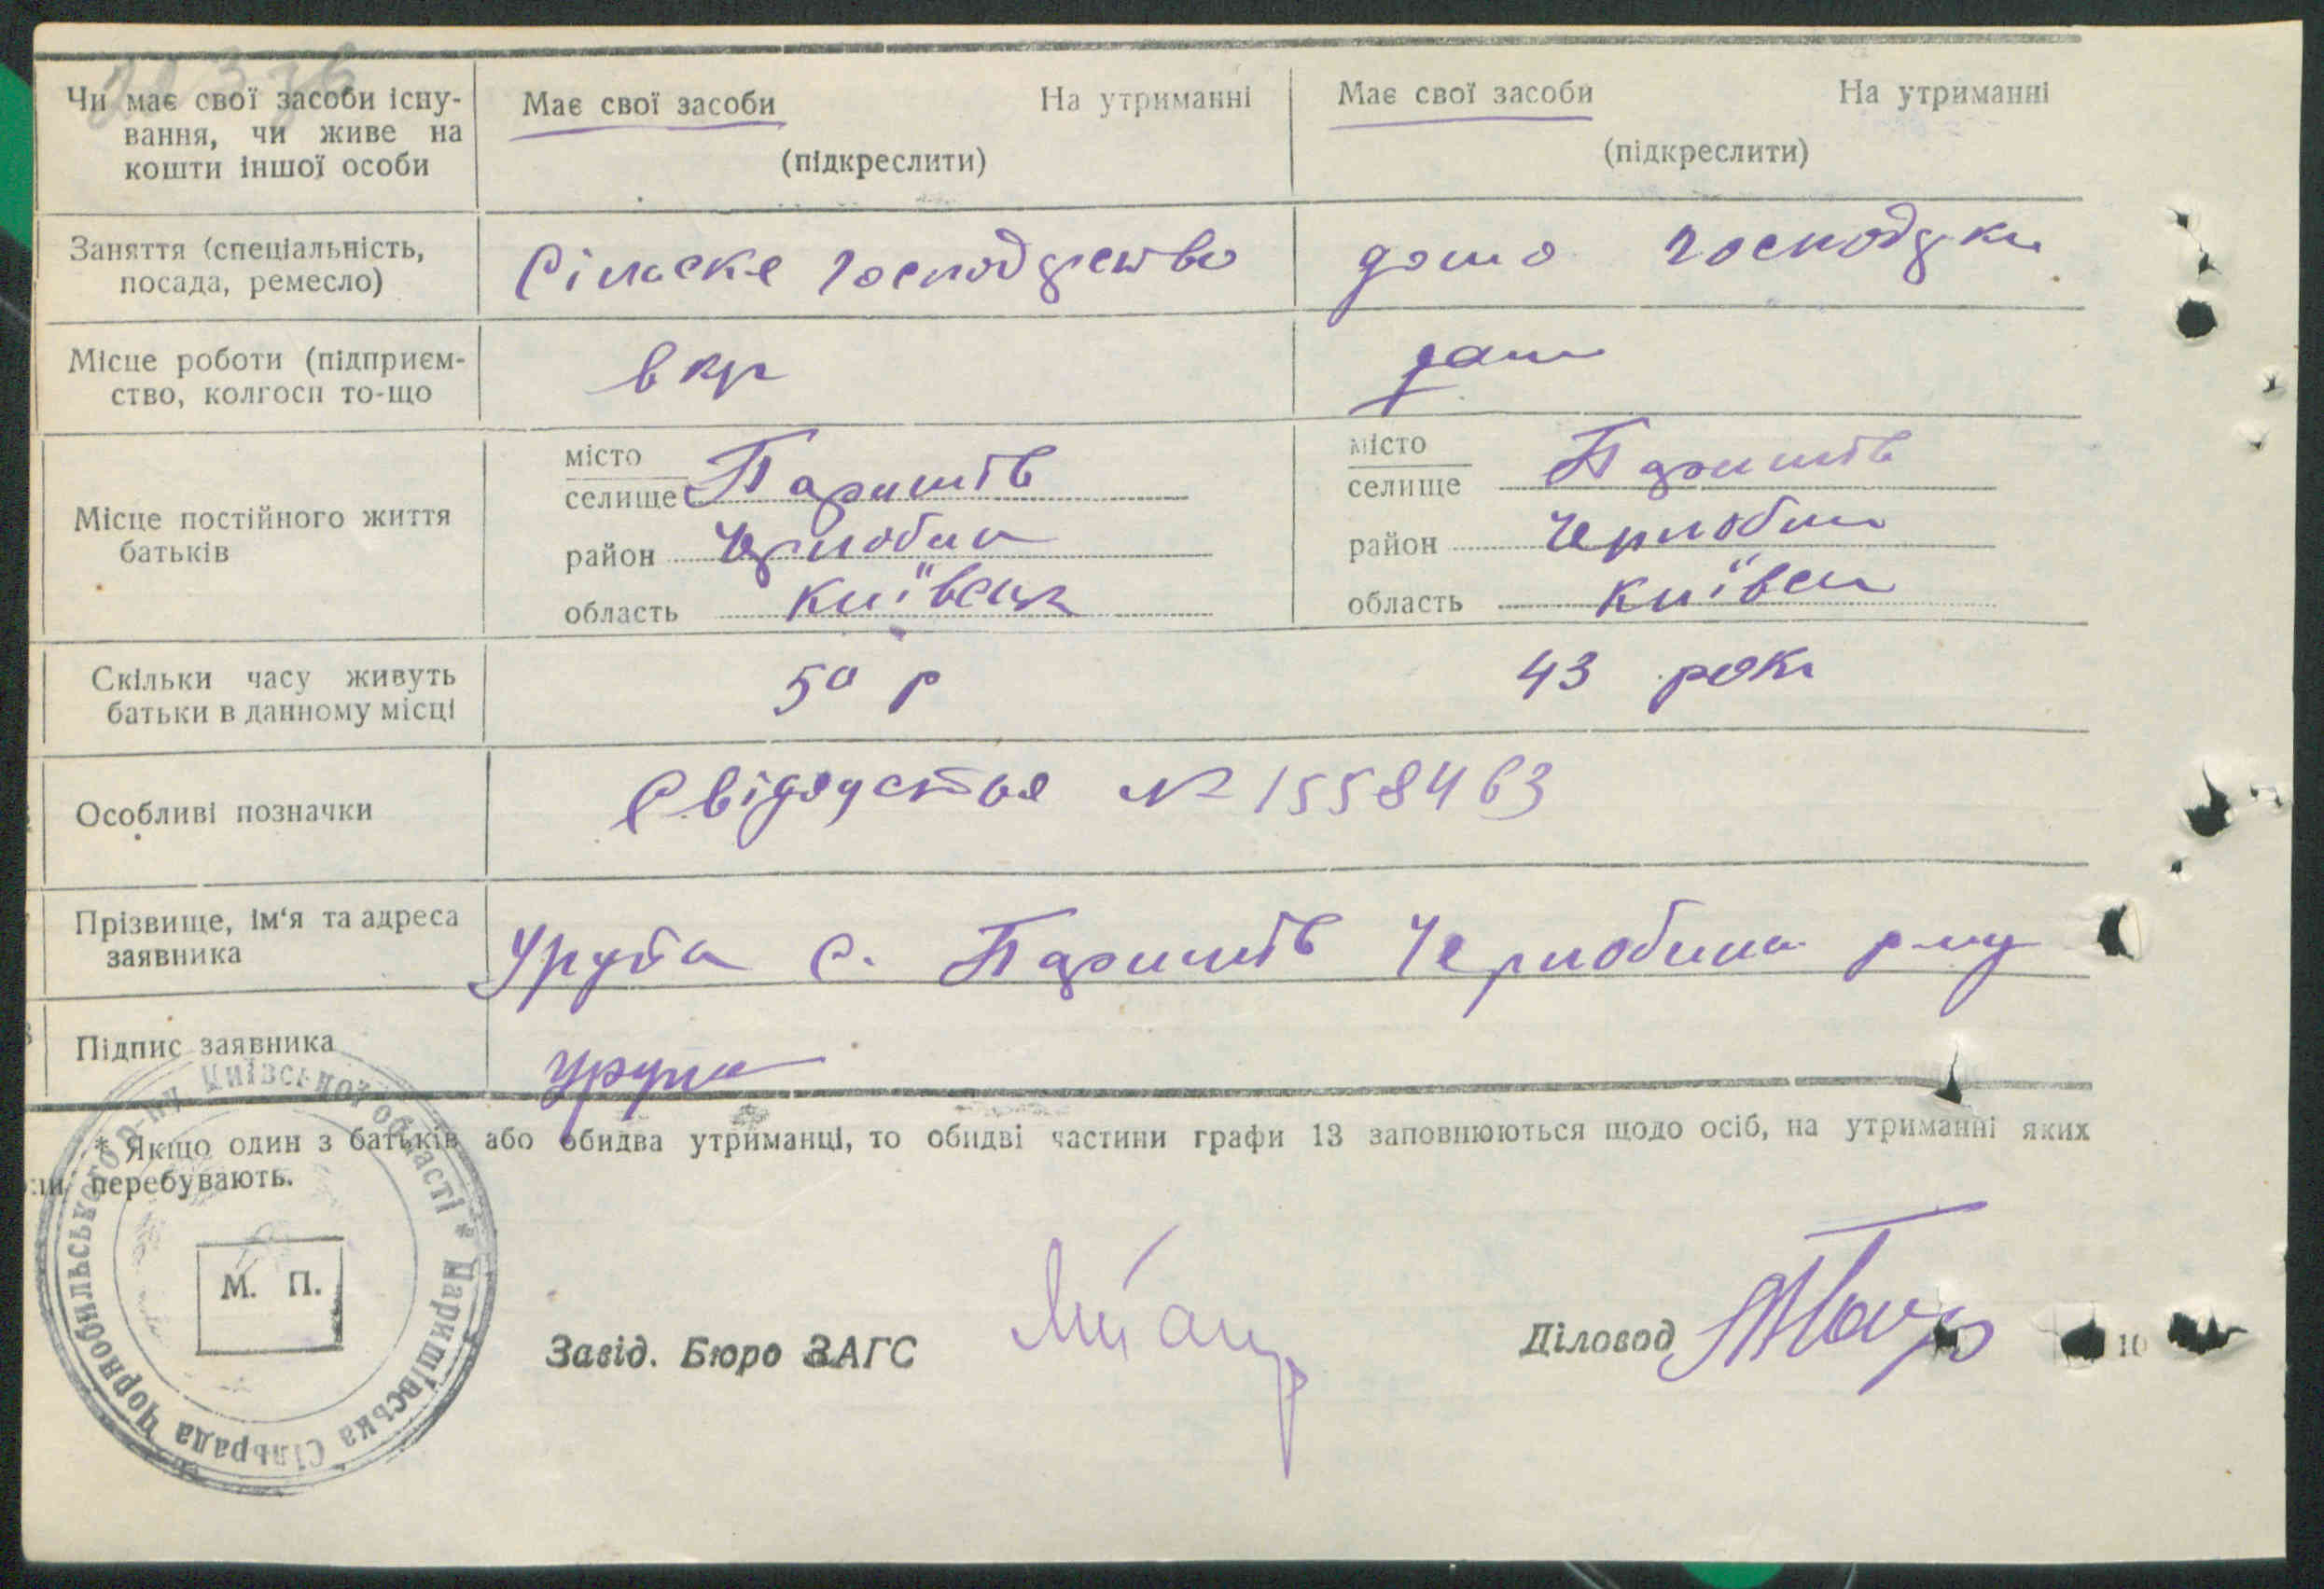 Чи має свої засоби існу-
вання, чи живе на
кошти іншої особи
Має свої засоби На утриманні
(підкреслити)
Має свої засоби На утриманні
(підкреслити)
Заняття (спеціальність,
посада, ремесло)
Сілаське господарство
домо господарки
Місце роботи (підприєм-
ство, колгосп то-що
в кр
дома
Місце постійного життя
батьків
місто
селище Паришів
район Чернобил
область Київськ
місто
селище Паришів
район Чернобил
область Київськ
Скільки часу живуть
батьки в данному місці
50 р
43 рокі
Особливі позначки
Свідоцство № 1558463
Прізвище, ім'я та адреса
заявника
Урупа с. Паришів Чернобил р-ну
Підпис заявника
Урупа
* Якщо один з батьків або обидва утриманці, то обидві частини графи 13 заповнюються щодо осіб, на утриманні яких
перебувають.
М. П.
Паришівська Сільрада Чорнобильського р-ну Київської області *
Завід. Бюро ЗАГС
Діловод
10